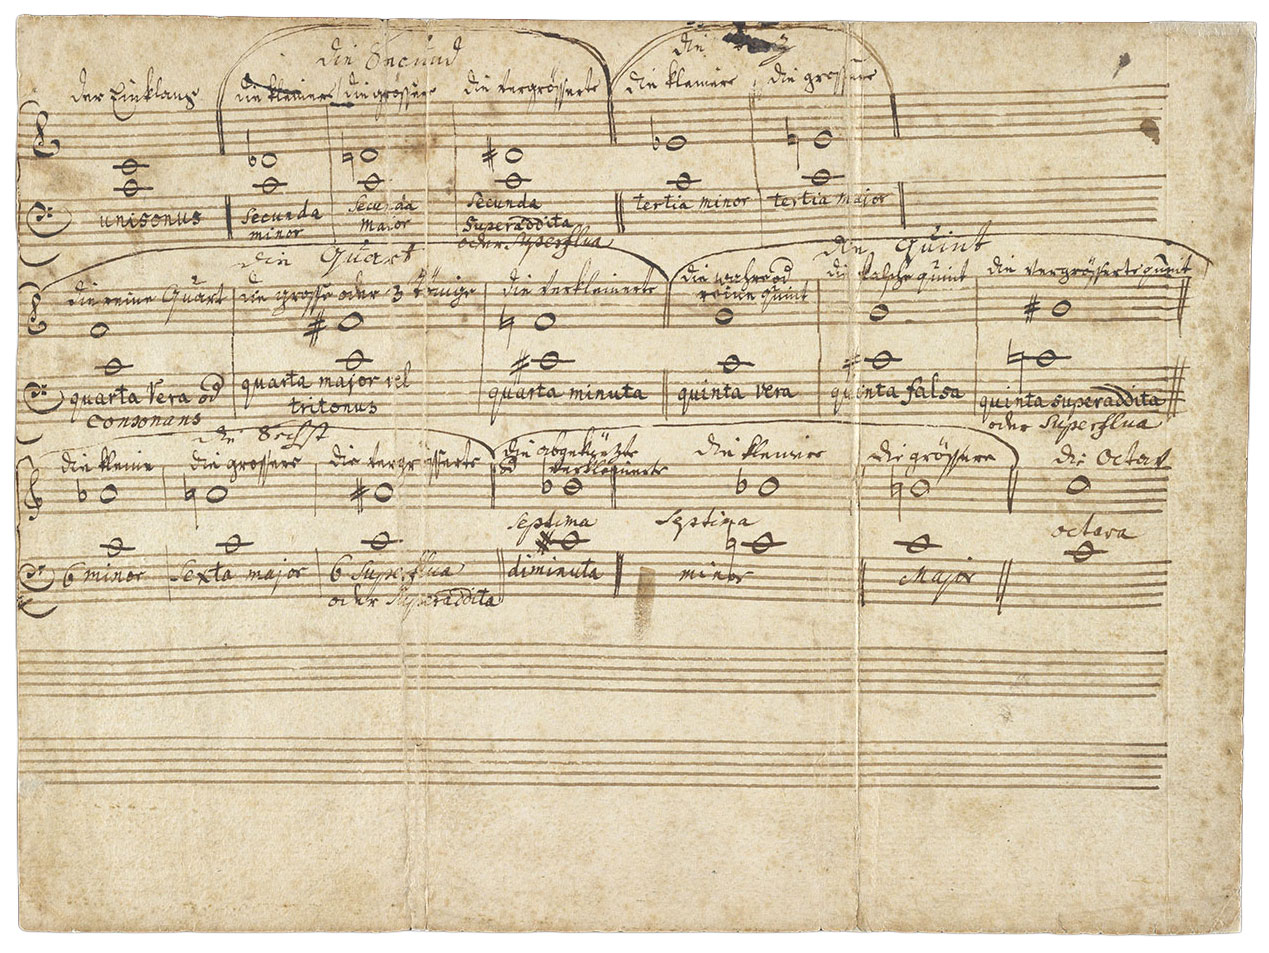 die Secund
die
der Einklang die kleinere die grössere die vergrösserte die kleinere die grössere
unisonus secunda minor secunda major secunda superaddita oder superflua tertia minor tertia major
die Quart
die Quint
die reine Quart die grosse oder 3 tönige die verkleinerte die wahre od reine quint die falsche quint die vergrösserte quint
quarta vera od consonans quarta major vel tritonus quarta minuta quinta vera quinta falsa quinta superaddita oder superflua
die Sechst
die kleine die grössere die vergrösserte die abgekürzte od verkleinerte die kleinere die grössere die Octav
6 minor sexta major 6 superflua oder superaddita septima diminuta septima minor major octava